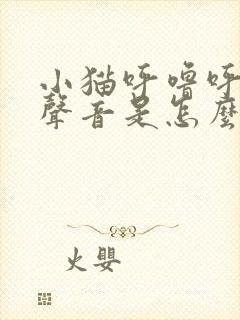 小猫呼噜呼
聲音是怎麼
火嬰